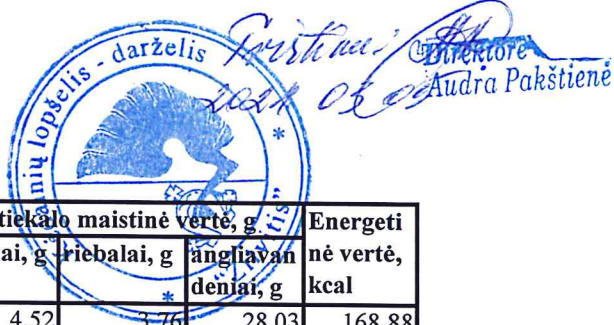 darželis
Tvirtinu:
Direktorė
Audra Pakštienė
lopšelis -
tiekalo maistinė vertė, g
Energeti
nė vertė,
kcal
ai, g
riebalai, g
angliavan
deniai, g
4,52
3,76
28,03
168,88